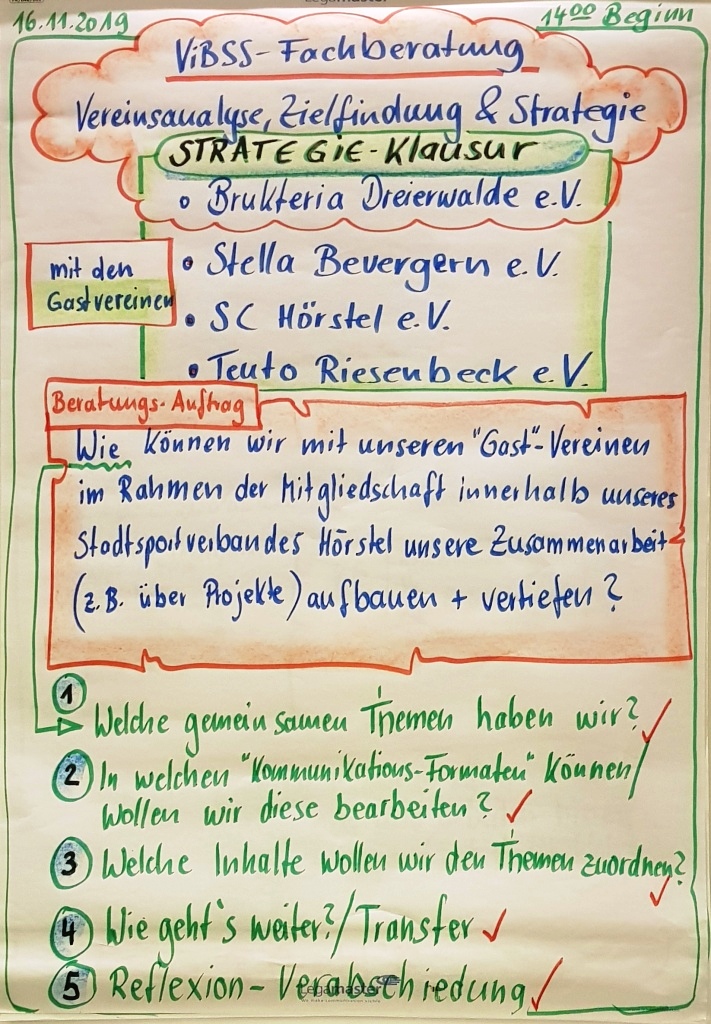 Legamaster
16.11.2019
14⁰⁰ Beginn
ViBSS-Fachberatung
Vereinsanalyse, Zielfindung & Strategie
STRATEGIE-Klausur
• Brukteria Dreierwalde e.V.
mit den
Gastvereinen
• Stella Bevergern e.V.
• SC Hörstel e.V.
• Teuto Riesenbeck e.V.
Beratungs-Auftrag
Wie können wir mit unseren "Gast"-Vereinen
im Rahmen der Mitgliedschaft innerhalb unseres
Stadtsportverbandes Hörstel unsere Zusammenarbeit
(z.B. über Projekte) aufbauen + vertiefen?
1
Welche gemeinsamen Themen haben wir?
2 In welchen "Kommunikations-Formaten" können/
wollen wir diese bearbeiten?
3 Welche Inhalte wollen wir den Themen zuordnen?
4 Wie geht's weiter?/Transfer
5 Reflexion-Verabschiedung
Legamaster